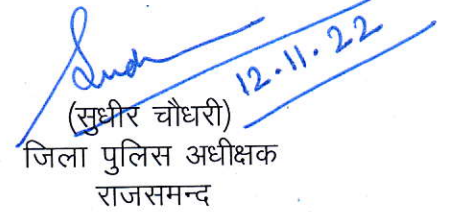 12.11.22
(सुधीर चौधरी)
जिला पुलिस अधीक्षक
राजसमन्द